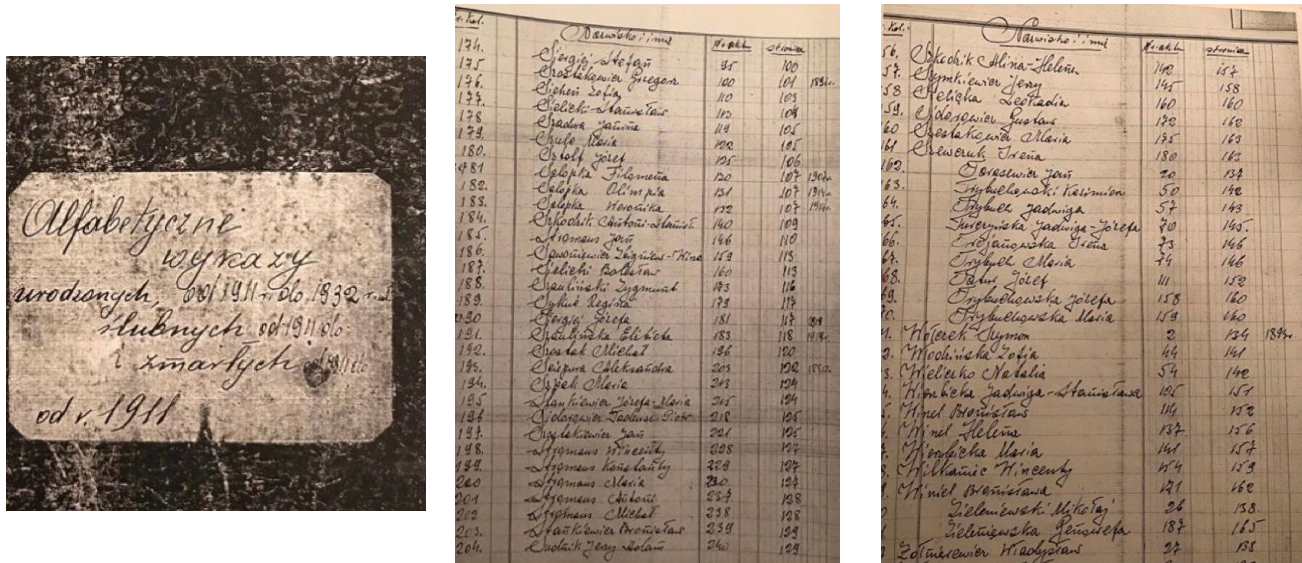 Alfabetyczne
wykazy
urodzonych, od 1911 r. do 1932 r.
ślubnych od 1911 do
i zmarłych
od r. 1911
Nazwisko i imię Nr. akt stronica
174.
175 Siergiej Stefan 95 100
176. Szostakowicz Grzegorz 100 101
177. Zofia 110 103
178 Sielicki Stanisław 113 104
179. Janina 119 105
Maria 122 105
180. Józef 125 106
181 Sołopka Filomena 130 107
182. Sołopka Olimpia 131 107
183. Sołopka Weronika 132 107
184. Szkodzik Antoni 140 109
185. Szymans Jan 146 110
186. 159 113
187. Sielicki Bolesław 160 113
188. Szauliński Zygmunt 173 116
189. Regina 179 117
190 Siergiej Józefa 181 117
191. Szaulińska Elżbieta 183 118
192. Szostak Michał 196 120
193. Aleksandra 203 122
194. Szpak Maria 213 124
195 Stankiewicz Józefa-Maria 215 124
196 Sidorowicz Tadeusz-Piotr 218 125
197. Szostakiewicz Jan 221 125
198. Szymans Wincenty 228 127
199. Szymans Konstanty 229 127
200 Szymans Maria 230 127
201 Szymans Antoni 237 128
202 Szymans Michał 238 128
203. Stankiewicz Bronisław 239 129
204. Sudnik Jerzy 240 129
Nazwisko i imię Nr. akt stronica
56. Szkodzik Alina-Helena 142 157
57. Szymkiewicz Jerzy 145 158
58 Sielicka Leokadia 160 160
59. Sidorowicz Gustaw 172 162
60 Szostakowicz Maria 175 163
61 Szewczuk Irena 180 163
162. Tarasewicz Jan 20 137
63. Trybuchowski Kazimierz 50 142
64. Trybuch Jadwiga 57 143
65. Jadwiga-Józefa 70 145.
66. Trojanowska Irena 73 146
67. Trybuch Maria 74 146
68. Józef 111 152
69. Trybuchowska Józefa 158 160
70. Trybuchowska Maria 159 160
Wołczek Szymon 2 134
Wodzińska Zofia 44 141
3. Wieliczko Natalia 54 142
4. Wierzbicka Jadwiga-Stanisława 105 151
5. Winel Bronisław 114 152
Winel Helena 137 156
7. Wierzbicka Maria 141 157
8. Wilkaniec Wincenty 154 159
Winiel Bronisława 171 162
Zieleniewski Mikołaj 26 138
Zieleniewska Genowefa 187 165
Żołnierewicz Władysław 27 138